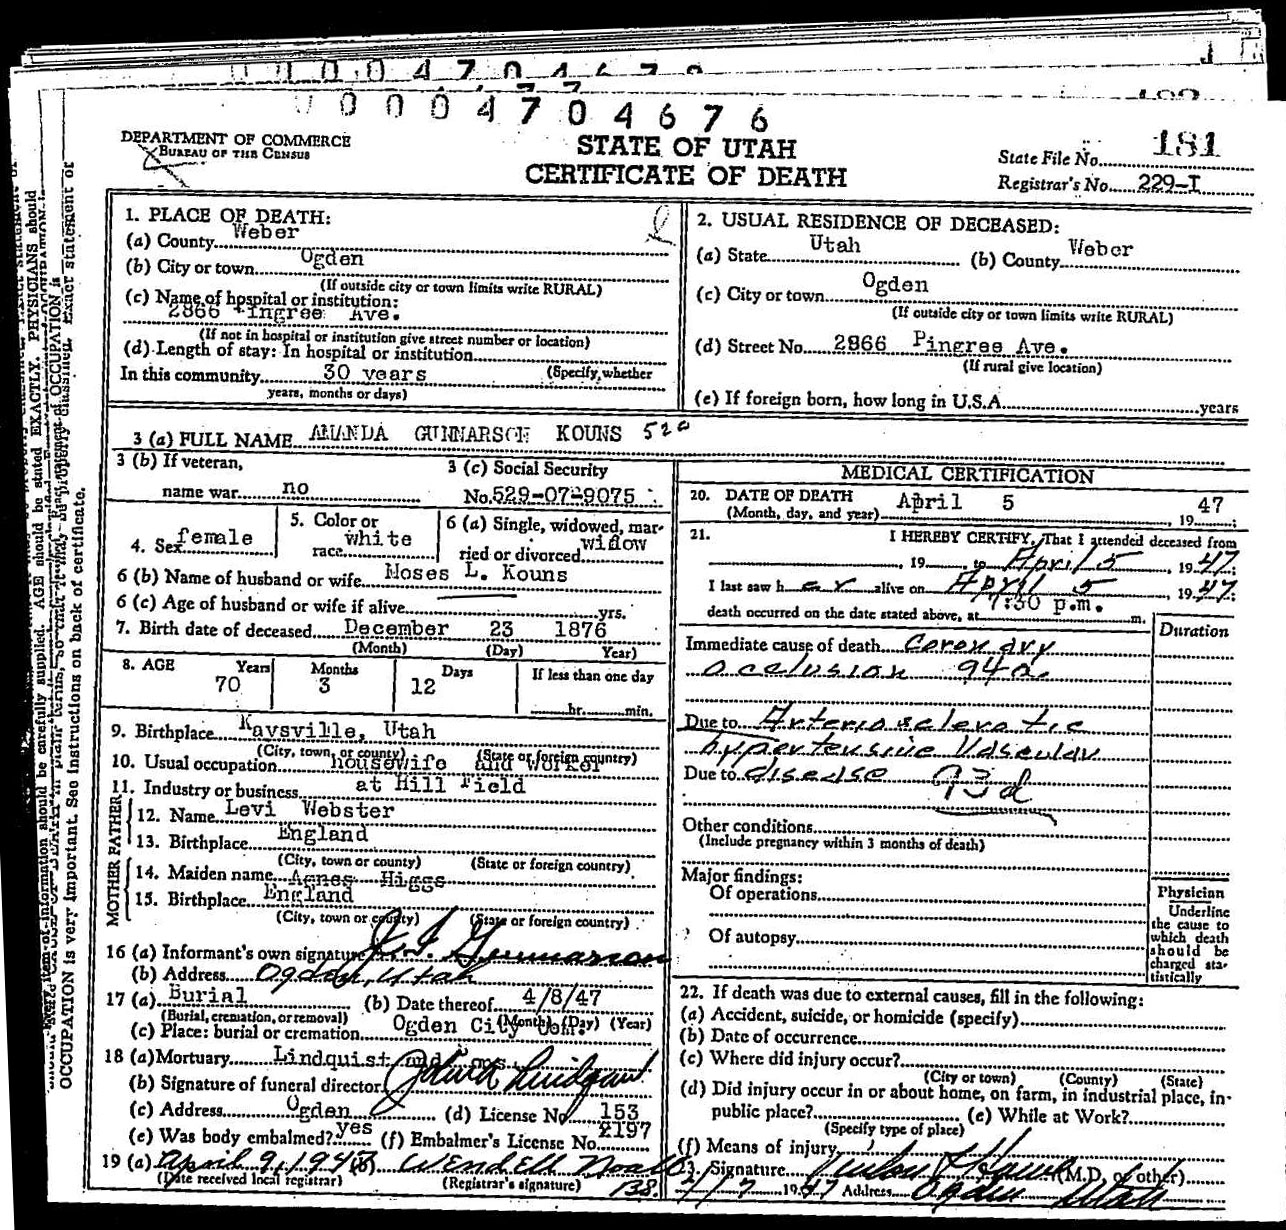 0004704678
0004704676
DEPARTMENT OF COMMERCE
BUREAU OF THE CENSUS
STATE OF UTAH
CERTIFICATE OF DEATH
State File No. 181
Registrar's No. 229-I
1. PLACE OF DEATH:
(a) County Weber
(b) City or town Ogden
(If outside city or town limits write RURAL)
(c) Name of hospital or institution:
2866 Pingree Ave.
(If not in hospital or institution give street number or location)
(d) Length of stay: In hospital or institution
In this community 30 years (Specify whether
years, months or days)
2. USUAL RESIDENCE OF DECEASED:
(a) State Utah (b) County Weber
(c) City or town Ogden
(If outside city or town limits write RURAL)
(d) Street No. 2866 Pingree Ave.
(If rural give location)
(e) If foreign born, how long in U.S.A. years
3 (a) FULL NAME AMANDA GUNNARSON KOUNS 520
3 (b) If veteran,
name war no
3 (c) Social Security
No. 529-07-9075
4. Sex female
5. Color or
race white
6 (a) Single, widowed, mar-
ried or divorced widow
6 (b) Name of husband or wife Moses L. Kouns
6 (c) Age of husband or wife if alive yrs.
7. Birth date of deceased December 23 1876
(Month) (Day) Year)
8. AGE Years Months Days If less than one day
70 3 12
hr. min.
9. Birthplace Kaysville, Utah
(City, town, or county) (State or foreign country)
10. Usual occupation housewife and worker
11. Industry or business at Hill Field
FATHER
12. Name Levi Webster
13. Birthplace England
(City, town or county) (State or foreign country)
MOTHER
14. Maiden name Agnes Higgs
15. Birthplace England
(City, town or county) (State or foreign country)
16 (a) Informant's own signature Gunnarson
(b) Address Ogden, Utah
17 (a) Burial (b) Date thereof 4/8/47
(Burial, cremation, or removal) (Month) (Day) (Year)
(c) Place: burial or cremation Ogden City Cem.
18 (a) Mortuary Lindquist and Sons
(b) Signature of funeral director
(c) Address Ogden (d) License No. 153
(e) Was body embalmed? yes (f) Embalmer's License No. 2197
19 (a) April 9, 1947 (b) Wendell Noall
(Date received local registrar) (Registrar's signature) 138.
MEDICAL CERTIFICATION
20. DATE OF DEATH April 5 47
(Month, day, and year) , 19 ;
21. I HEREBY CERTIFY, That I attended deceased from
, 19 to April 5, 1947;
I last saw her alive on April 5, 1947;
death occurred on the date stated above, at 7:30 p.m. m.
Duration
Immediate cause of death Coronary
occlusion 94a.
Due to Arteriosclerotic
hypertensive Vascular
Due to disease 93d
Other conditions
(Include pregnancy within 3 months of death)
Major findings:
Of operations
Of autopsy
Physician
Underline
the cause to
which death
should be
charged sta-
tistically
22. If death was due to external causes, fill in the following:
(a) Accident, suicide, or homicide (specify)
(b) Date of occurrence
(c) Where did injury occur?
(City or town) (County) (State)
(d) Did injury occur in or about home, on farm, in industrial place, in-
public place? (e) While at Work?
(Specify type of place)
(f) Means of injury
23. Signature (M.D. or other)
1947 Address Ogden Utah
AGE should be stated EXACTLY. PHYSICIANS should
OCCUPATION is very important. See instructions on back of certificate.